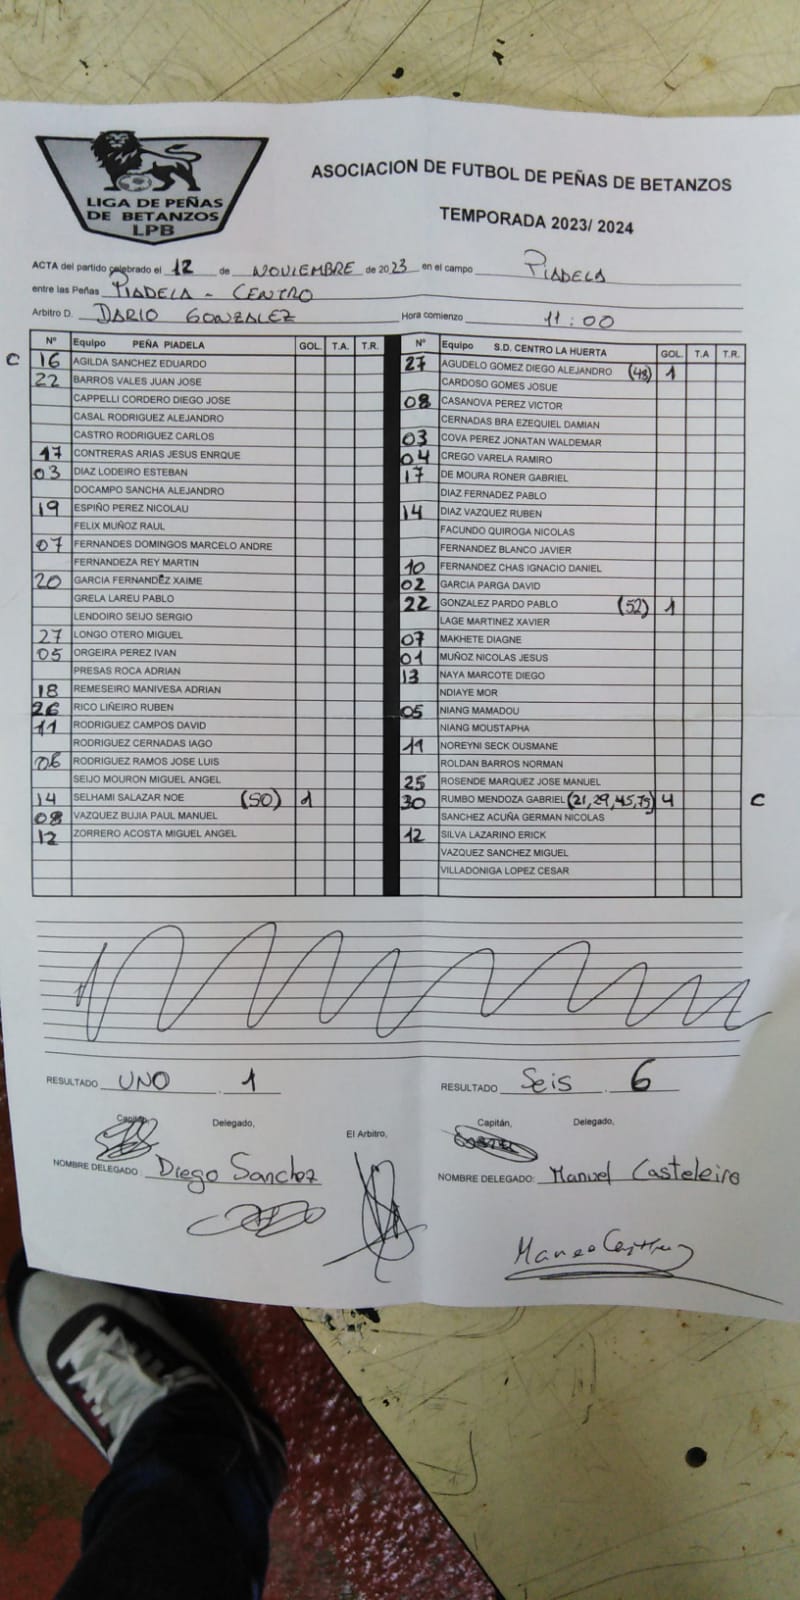 LIGA DE PEÑAS
DE BETANZOS
LPB
ASOCIACION DE FUTBOL DE PEÑAS DE BETANZOS
TEMPORADA 2023/ 2024
ACTA del partido celebrado el 12 de NOVIEMBRE de 2023 en el campo PIADELA
entre las Peñas PIADELA - CENTRO
Arbitro D. DARIO GONZALEZ Hora comienzo 11:00
Nº Equipo PEÑA PIADELA GOL. T.A. T.R.
C 16 AGILDA SANCHEZ EDUARDO
22 BARROS VALES JUAN JOSE
CAPPELLI CORDERO DIEGO JOSE
CASAL RODRIGUEZ ALEJANDRO
CASTRO RODRIGUEZ CARLOS
17 CONTRERAS ARIAS JESUS ENRQUE
03 DIAZ LODEIRO ESTEBAN
DOCAMPO SANCHA ALEJANDRO
19 ESPIÑO PEREZ NICOLAU
FELIX MUÑOZ RAUL
07 FERNANDES DOMINGOS MARCELO ANDRE
FERNANDEZA REY MARTIN
20 GARCIA FERNANDEZ XAIME
GRELA LAREU PABLO
LENDOIRO SEIJO SERGIO
27 LONGO OTERO MIGUEL
05 ORGEIRA PEREZ IVAN
PRESAS ROCA ADRIAN
18 REMESEIRO MANIVESA ADRIAN
26 RICO LIÑEIRO RUBEN
11 RODRIGUEZ CAMPOS DAVID
RODRIGUEZ CERNADAS IAGO
06 RODRIGUEZ RAMOS JOSE LUIS
SEIJO MOURON MIGUEL ANGEL
14 SELHAMI SALAZAR NOE (50) 1
08 VAZQUEZ BUJIA PAUL MANUEL
12 ZORRERO ACOSTA MIGUEL ANGEL
Nº Equipo S.D. CENTRO LA HUERTA GOL. T.A T.R.
27 AGUDELO GOMEZ DIEGO ALEJANDRO (48) 1
CARDOSO GOMES JOSUE
08 CASANOVA PEREZ VICTOR
CERNADAS BRA EZEQUIEL DAMIAN
03 COVA PEREZ JONATAN WALDEMAR
04 CREGO VARELA RAMIRO
17 DE MOURA RONER GABRIEL
DIAZ FERNADEZ PABLO
14 DIAZ VAZQUEZ RUBEN
FACUNDO QUIROGA NICOLAS
FERNANDEZ BLANCO JAVIER
10 FERNANDEZ CHAS IGNACIO DANIEL
02 GARCIA PARGA DAVID
22 GONZALEZ PARDO PABLO (52) 1
LAGE MARTINEZ XAVIER
07 MAKHETE DIAGNE
01 MUÑOZ NICOLAS JESUS
13 NAYA MARCOTE DIEGO
NDIAYE MOR
05 NIANG MAMADOU
NIANG MOUSTAPHA
11 NOREYNI SECK OUSMANE
ROLDAN BARROS NORMAN
25 ROSENDE MARQUEZ JOSE MANUEL
30 RUMBO MENDOZA GABRIEL (21,29,45,75) 4 C
SANCHEZ ACUÑA GERMAN NICOLAS
12 SILVA LAZARINO ERICK
VAZQUEZ SANCHEZ MIGUEL
VILLADONIGA LOPEZ CESAR
RESULTADO UNO 1 RESULTADO SEIS 6
Capitán, Delegado, El Arbitro, Capitán, Delegado,
NOMBRE DELEGADO: Diego Sanchez NOMBRE DELEGADO: Manuel Casteleiro